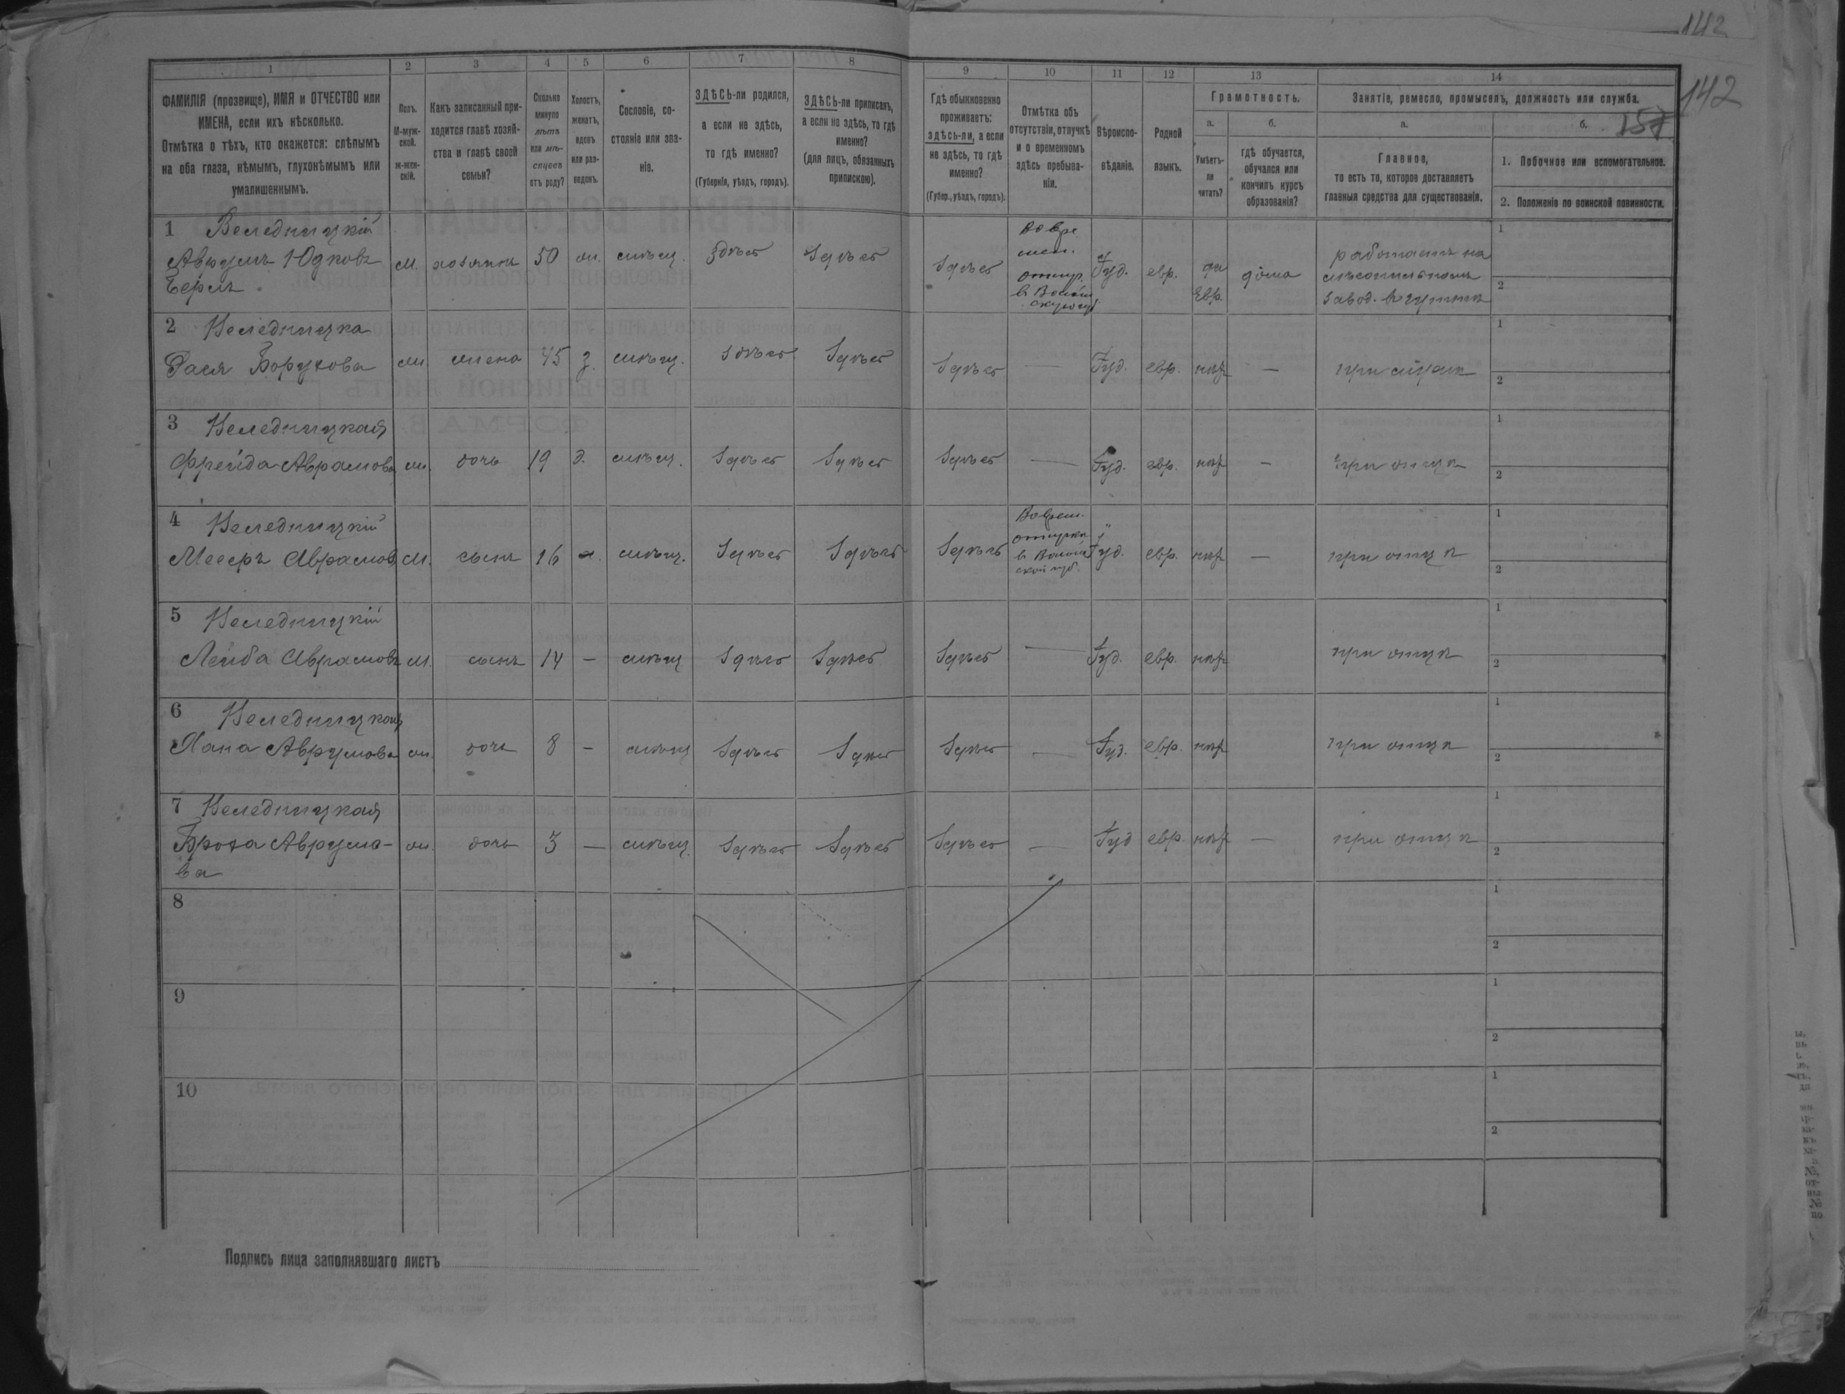 142
142
157
1
2
3
4
5
6
7
8
9
10
11
12
13
14
ФАМИЛІЯ (прозвище), ИМЯ и ОТЧЕСТВО или
ИМЕНА, если ихъ нѣсколько.
Отмѣтка о тѣхъ, кто окажется: слѣпымъ
на оба глаза, нѣмымъ, глухонѣмымъ или
умалишеннымъ.
Полъ.
М-муж-
ской.
ж-жен-
скій.
Какъ записанный при-
ходится главѣ хозяй-
ства и главѣ своей
семьи?
Сколько
минуло
лѣтъ
или мѣ-
сяцевъ
отъ роду?
Холостъ,
женатъ,
вдовъ
или раз-
веденъ.
Сословіе, со-
стояніе или зва-
ніе.
ЗДѢСЬ-ли родился,
а если не здѣсь,
то гдѣ именно?
(Губернія, уѣздъ, городъ).
ЗДѢСЬ-ли приписанъ,
а если не здѣсь, то гдѣ
именно?
(для лицъ, обязанныхъ
припискою).
Гдѣ обыкновенно
проживаетъ:
здѣсь-ли, а если
не здѣсь, то гдѣ
именно?
(Губер., уѣздъ, городъ).
Отмѣтка объ
отсутствіи, отлучкѣ
и о временномъ
здѣсь пребыва-
ніи.
Вѣроиспо-
вѣданіе.
Родной
языкъ.
Грамотность.
а.
б.
Умѣетъ-
ли
читать?
гдѣ обучается,
обучался или
кончилъ курсъ
образованія?
Занятіе, ремесло, промыселъ, должность или служба.
а.
б.
Главное,
то есть то, которое доставляетъ
главныя средства для существованія.
1. Побочное или вспомогательное.
2. Положеніе по воинской повинности.
1
Аврумъ Юдковъ
Берлъ
м. хозяинъ 50 ж. мѣщ. здѣсь здѣсь здѣсь
отлуч.
Іуд. евр. да
Евр. дома
работаетъ на
завод.
1
2
2
Бася Борухова ж. жена 45 з. мѣщ. здѣсь здѣсь здѣсь — Іуд. евр. нѣт — при мужѣ
1
2
3 Неледницкая
Фрейда Аврамова ж. дочь 19 д. мѣщ. здѣсь здѣсь здѣсь — Іуд. евр. нѣт — при отцѣ
1
2
4 Неледницкій
Мееръ Аврамов м. сынъ 16 х. мѣщ. здѣсь здѣсь здѣсь Іуд. евр. нѣт — при отцѣ
1
2
5 Неледницкій
Лейба Аврамовъ м. сынъ 14 — мѣщ здѣсь здѣсь здѣсь — Іуд. евр. нѣт при отцѣ
1
2
6 Неледницкая
Хана Аврумова ж. дочь 8 — мѣщ здѣсь здѣсь здѣсь — Іуд. евр. нѣт при отцѣ
1
2
7 Неледницкая
Броха Аврумо-
ва
ж. дочь 3 — мѣщ. здѣсь здѣсь здѣсь — Іуд евр. нѣт — при отцѣ
1
2
8
1
2
9
1
2
10
1
2
Подпись лица заполнявшаго листъ